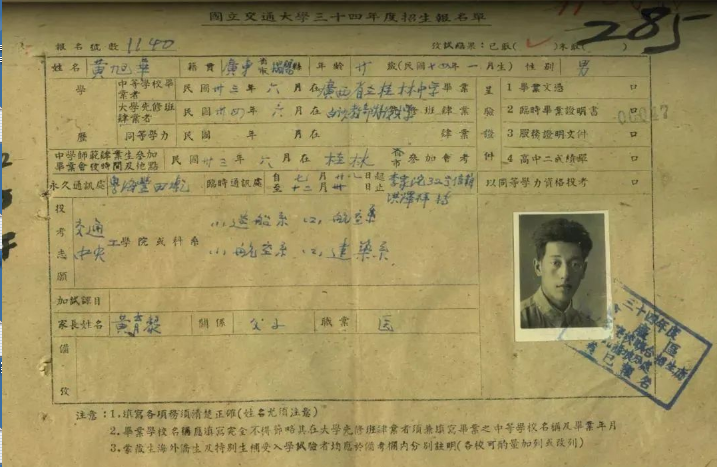 國立交通大學三十四年度招生報名單
285
報名號數 1140 校試結果:已取( )未取( )
姓名 黃旭華 籍貫 廣東 縣市 年齡 廿 歲(民國十四年一月生) 性別 男
學歷 中等學校畢業者 民國卅三年六月在廣西省立桂林中學畢業 呈驗證件 1 畢業文憑 口
大學先修班肄業者 民國卅四年六月在 班肄業 2 臨時畢業證明書 口
同等學力 民國 年 月在 肄業 3 服務證明文件 口
中學師範肄業生參加畢業會後時間及地點 民國卅三年六月在 桂林 省市 參加會考 4 高中二成績單 口
永久通訊處 臨時通訊處 自七月廿八日起至十二月廿日止 32号 以同等學力資格投考 口
投考志願 交通 工學院或科系 (1)造船系 (2)航空系
中央 (1)航空系 (2)建築系
加試課目
家長姓名 黃育 關係 父子 職業 医
備攷
三十四年度
區
已報名
注意:1.填寫各項務須清楚正確(姓名尤須注意)
2.畢業學校名稱應填寫完全不得節略其在大學先修班肄業者須兼填寫畢業之中等學校名稱及畢業年月
3.蒙藏生海外僑生及特別生補受入學試驗者均應於備考欄內分別註明(各校可酌量加列或改列)